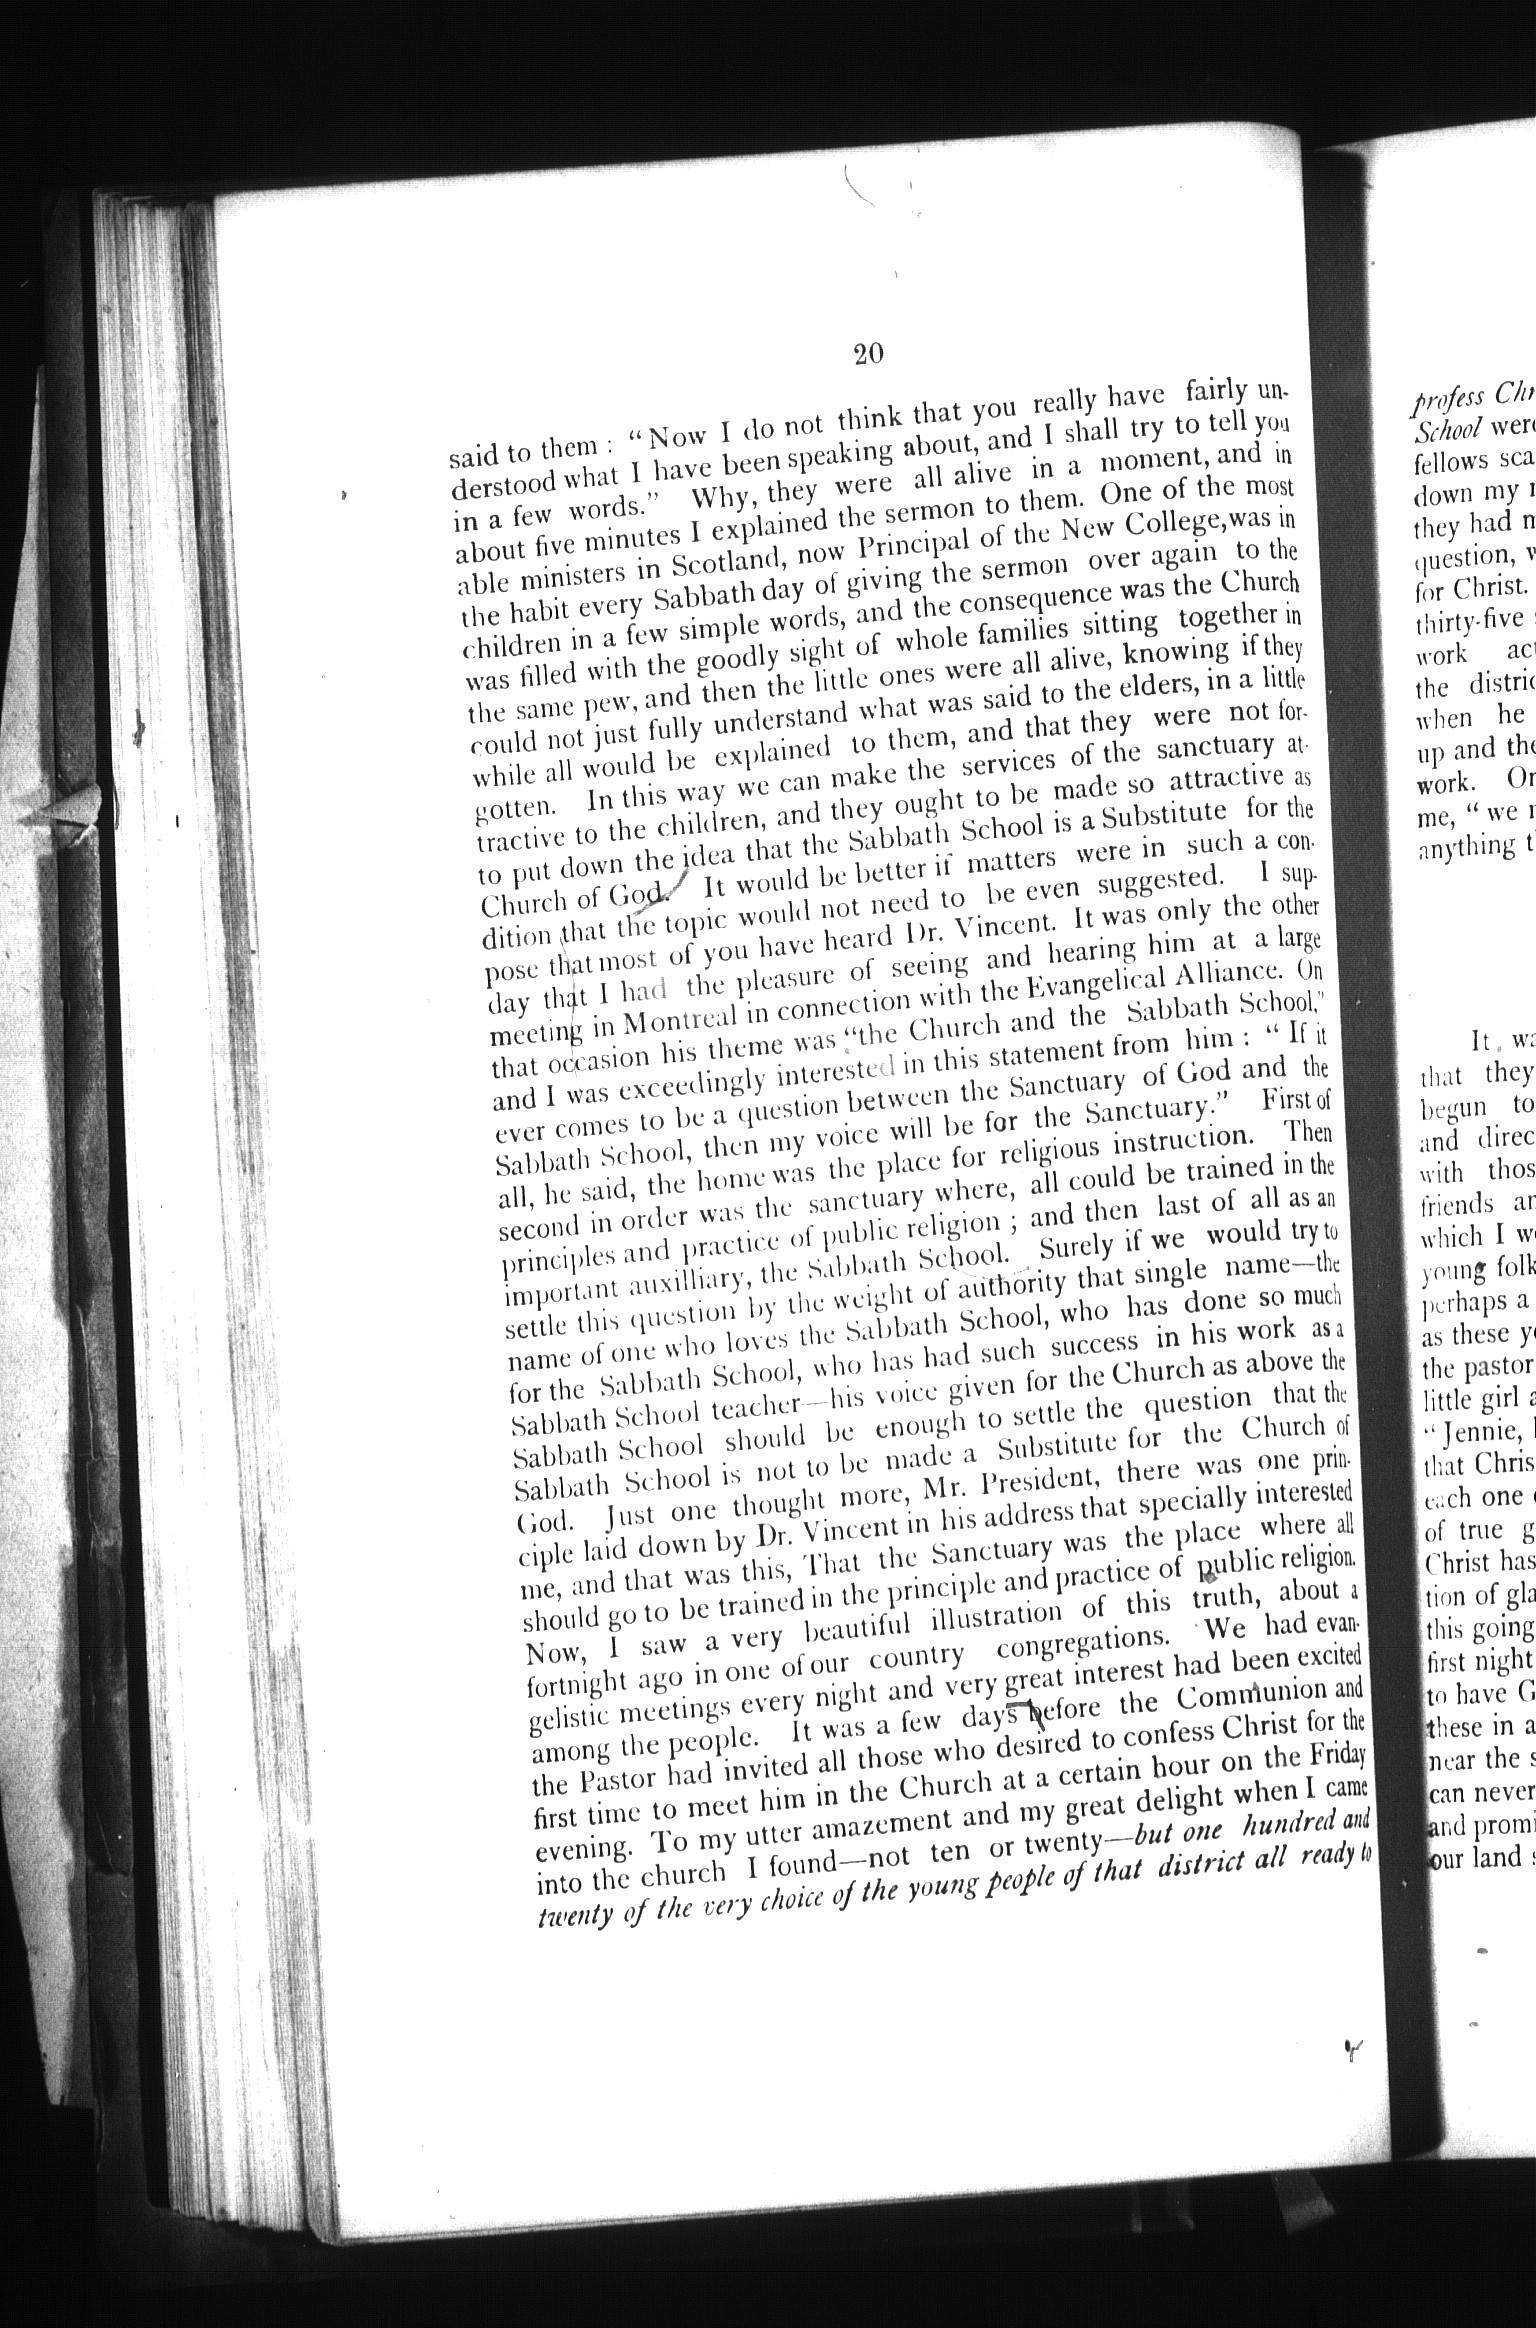 20
said to them : “Now I do not think that you really have fairly un-
derstood what I have been speaking about, and I shall try to tell you
in a few words.” Why, they were all alive in a moment, and in
about five minutes I explained the sermon to them. One of the most
able ministers in Scotland, now Principal of the New College, was in
the habit every Sabbath day of giving the sermon over again to the
children in a few simple words, and the consequence was the Church
was filled with the goodly sight of whole families sitting together in
the same pew, and then the little ones were all alive, knowing if they
could not just fully understand what was said to the elders, in a little
while all would be explained to them, and that they were not for-
gotten. In this way we can make the services of the sanctuary at-
tractive to the children, and they ought to be made so attractive as
to put down the idea that the Sabbath School is a Substitute for the
Church of God. It would be better if matters were in such a con-
dition that the topic would not need to be even suggested. I sup-
pose that most of you have heard Dr. Vincent. It was only the other
day that I had the pleasure of seeing and hearing him at a large
meeting in Montreal in connection with the Evangelical Alliance. On
that occasion his theme was “the Church and the Sabbath School,”
and I was exceedingly interested in this statement from him : “ If it
ever comes to be a question between the Sanctuary of God and the
Sabbath School, then my voice will be for the Sanctuary.” First of
all, he said, the home was the place for religious instruction. Then
second in order was the sanctuary where, all could be trained in the
principles and practice of public religion ; and then last of all as an
important auxilliary, the Sabbath School. Surely if we would try to
settle this question by the weight of authority that single name—the
name of one who loves the Sabbath School, who has done so much
for the Sabbath School, who has had such success in his work as a
Sabbath School teacher—his voice given for the Church as above the
Sabbath School should be enough to settle the question that the
Sabbath School is not to be made a Substitute for the Church of
God. Just one thought more, Mr. President, there was one prin-
ciple laid down by Dr. Vincent in his address that specially interested
me, and that was this, That the Sanctuary was the place where all
should go to be trained in the principle and practice of public religion.
Now, I saw a very beautiful illustration of this truth, about a
fortnight ago in one of our country congregations. We had evan-
gelistic meetings every night and very great interest had been excited
among the people. It was a few days before the Communion and
the Pastor had invited all those who desired to confess Christ for the
first time to meet him in the Church at a certain hour on the Friday
evening. To my utter amazement and my great delight when I came
into the church I found—not ten or twenty—but one hundred and
twenty of the very choice of the young people of that district all ready to
profess Chr
School were
fellows sca
down my
they had m
question, w
for Christ.
thirty-five
work act
the distric
when he
up and the
work. On
me, “ we
anything t
It wa
that they
begun to
and direc
with thos
friends an
which I w
young folk
perhaps a
as these y
the pastor
little girl a
“Jennie,
that Chris
each one
of true g
Christ has
tion of gla
this going
first night
to have G
these in a
near the s
can never
and promi
our land